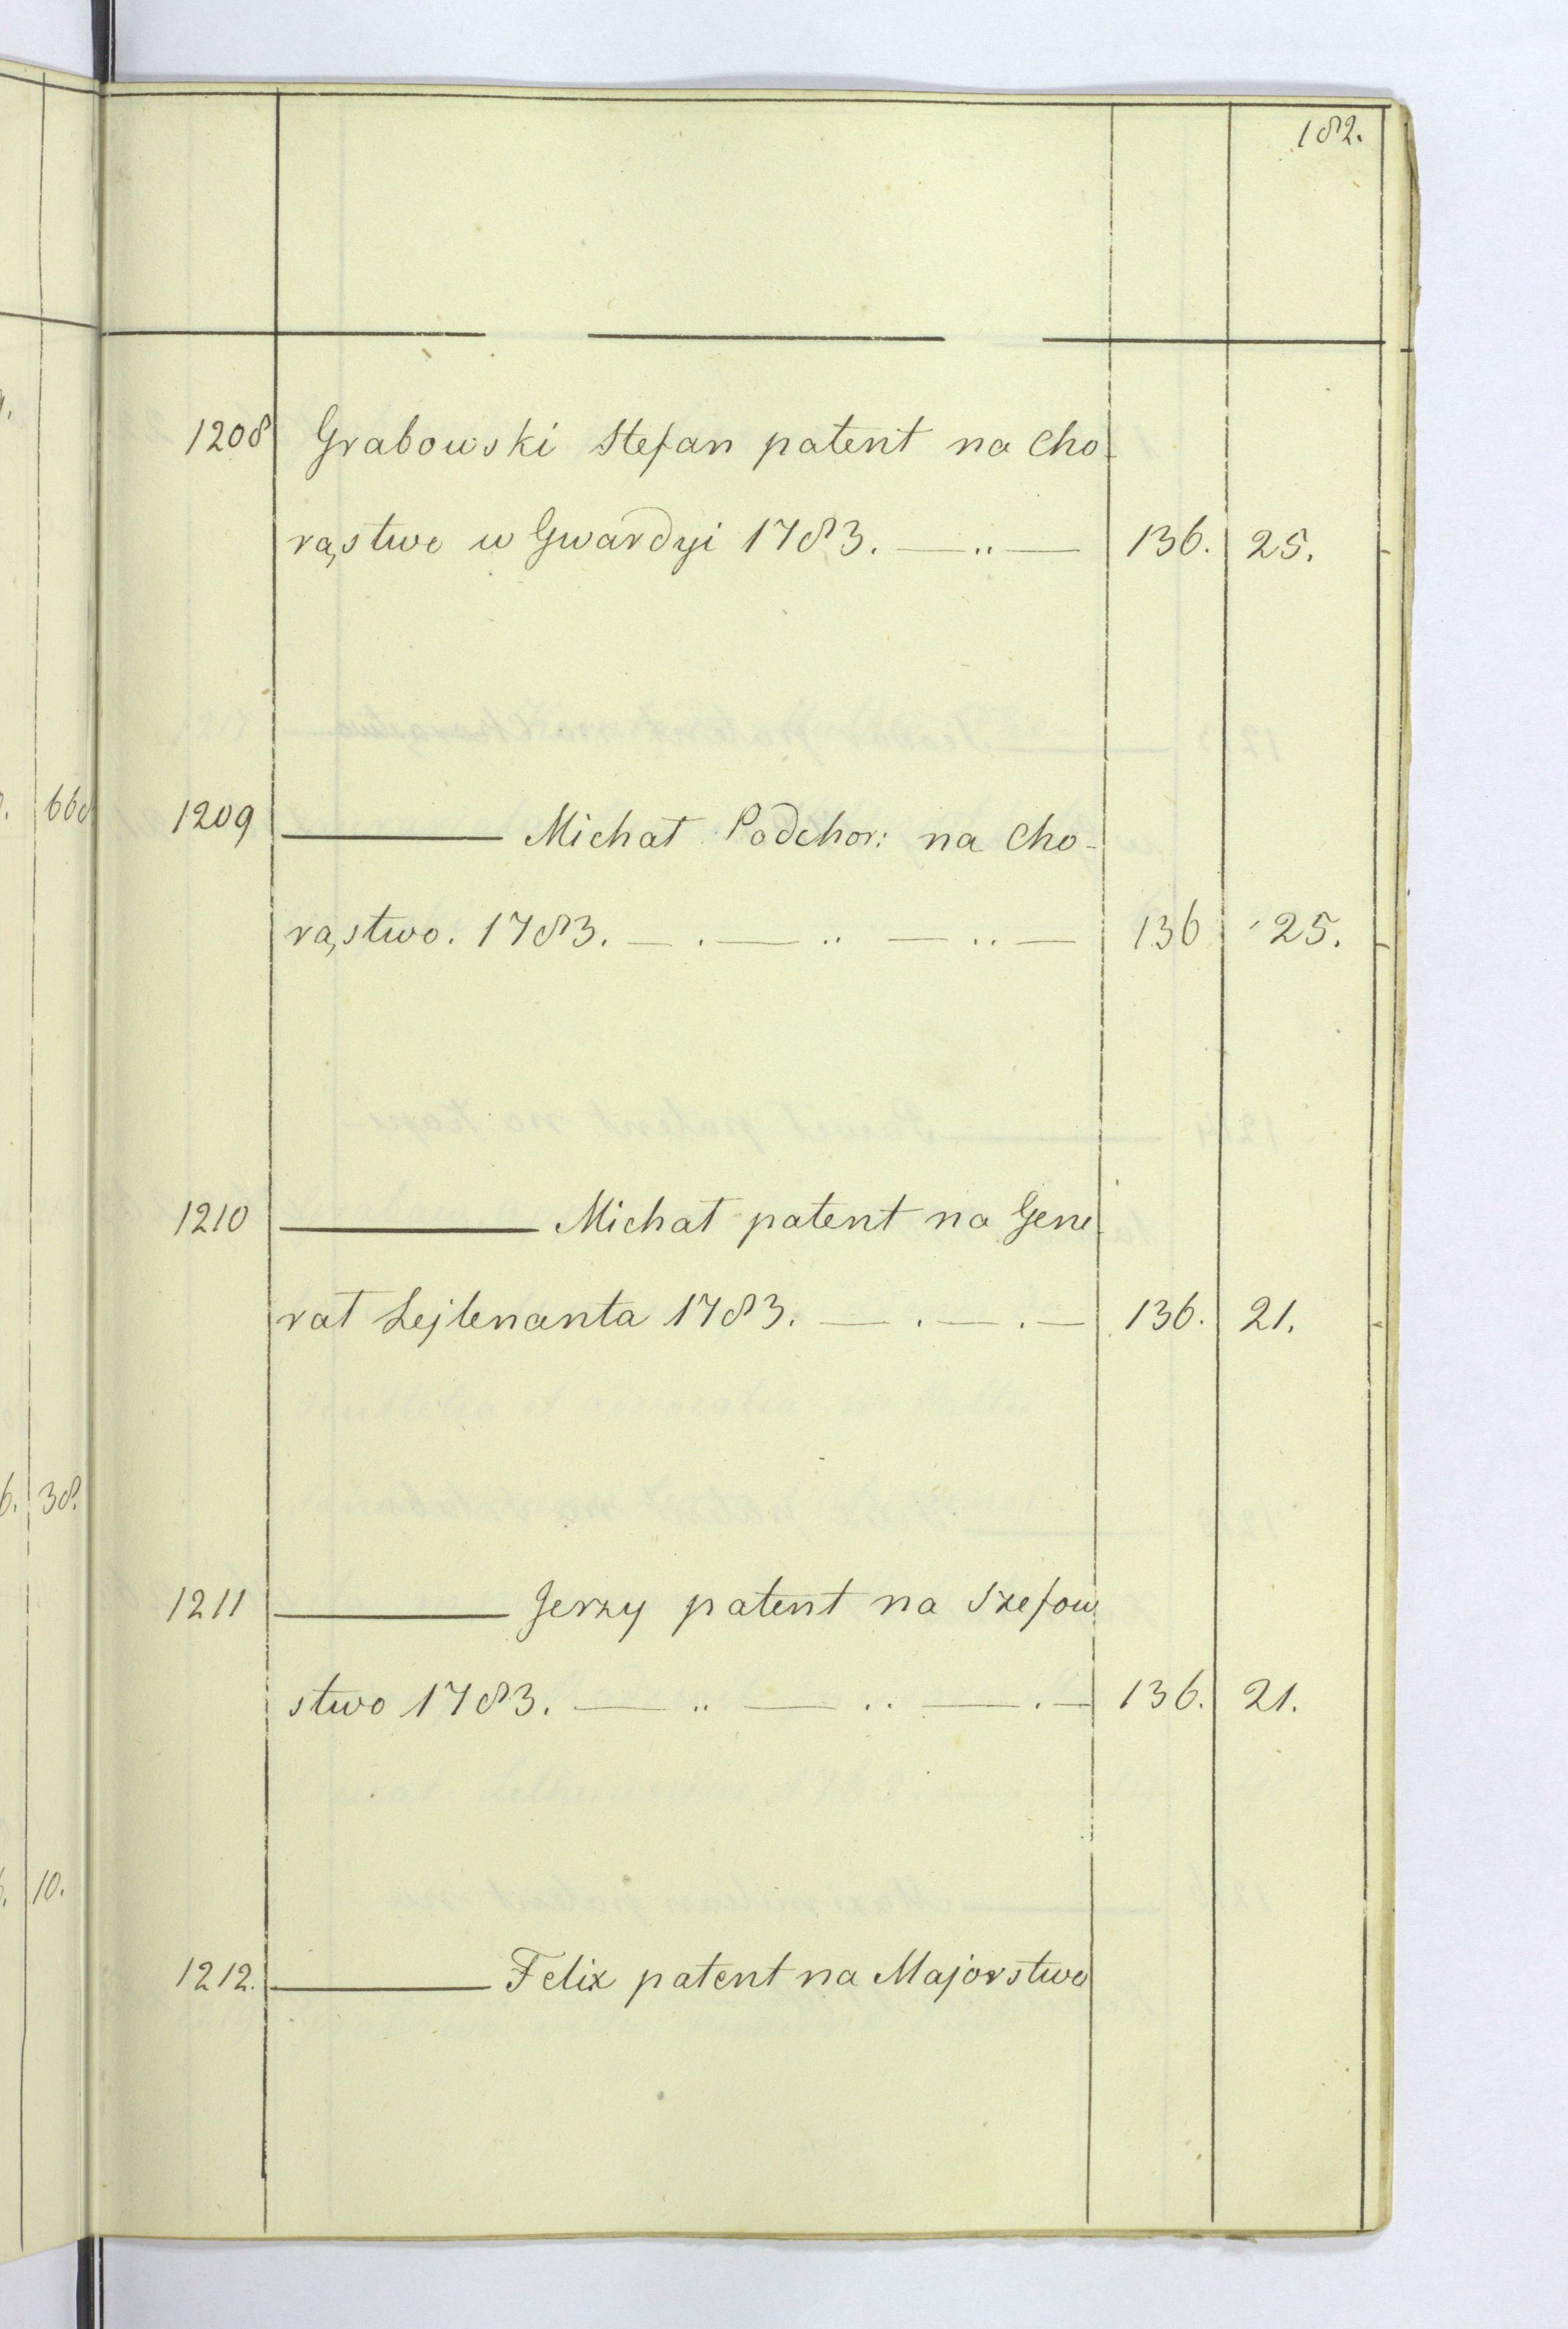 182.
1208 Grabowski Stefan patent na Cho-
rąstwo w Gwardyi 1783. — .. — 136. 25.
1209 ——— Michał Podchor: na Cho-
rąstwo. 1783. — . — .. — .. — 136 25.
1210 ——— Michał patent na Gene
rał Lejtenanta 1783. — . — . — 136. 21.
1211 ——— Jerzy patent na Szefow
stwo 1783. — .. — .. — . — 136. 21.
1212. ——— Felix patent na Majorstwo
668
6. 38.
10.